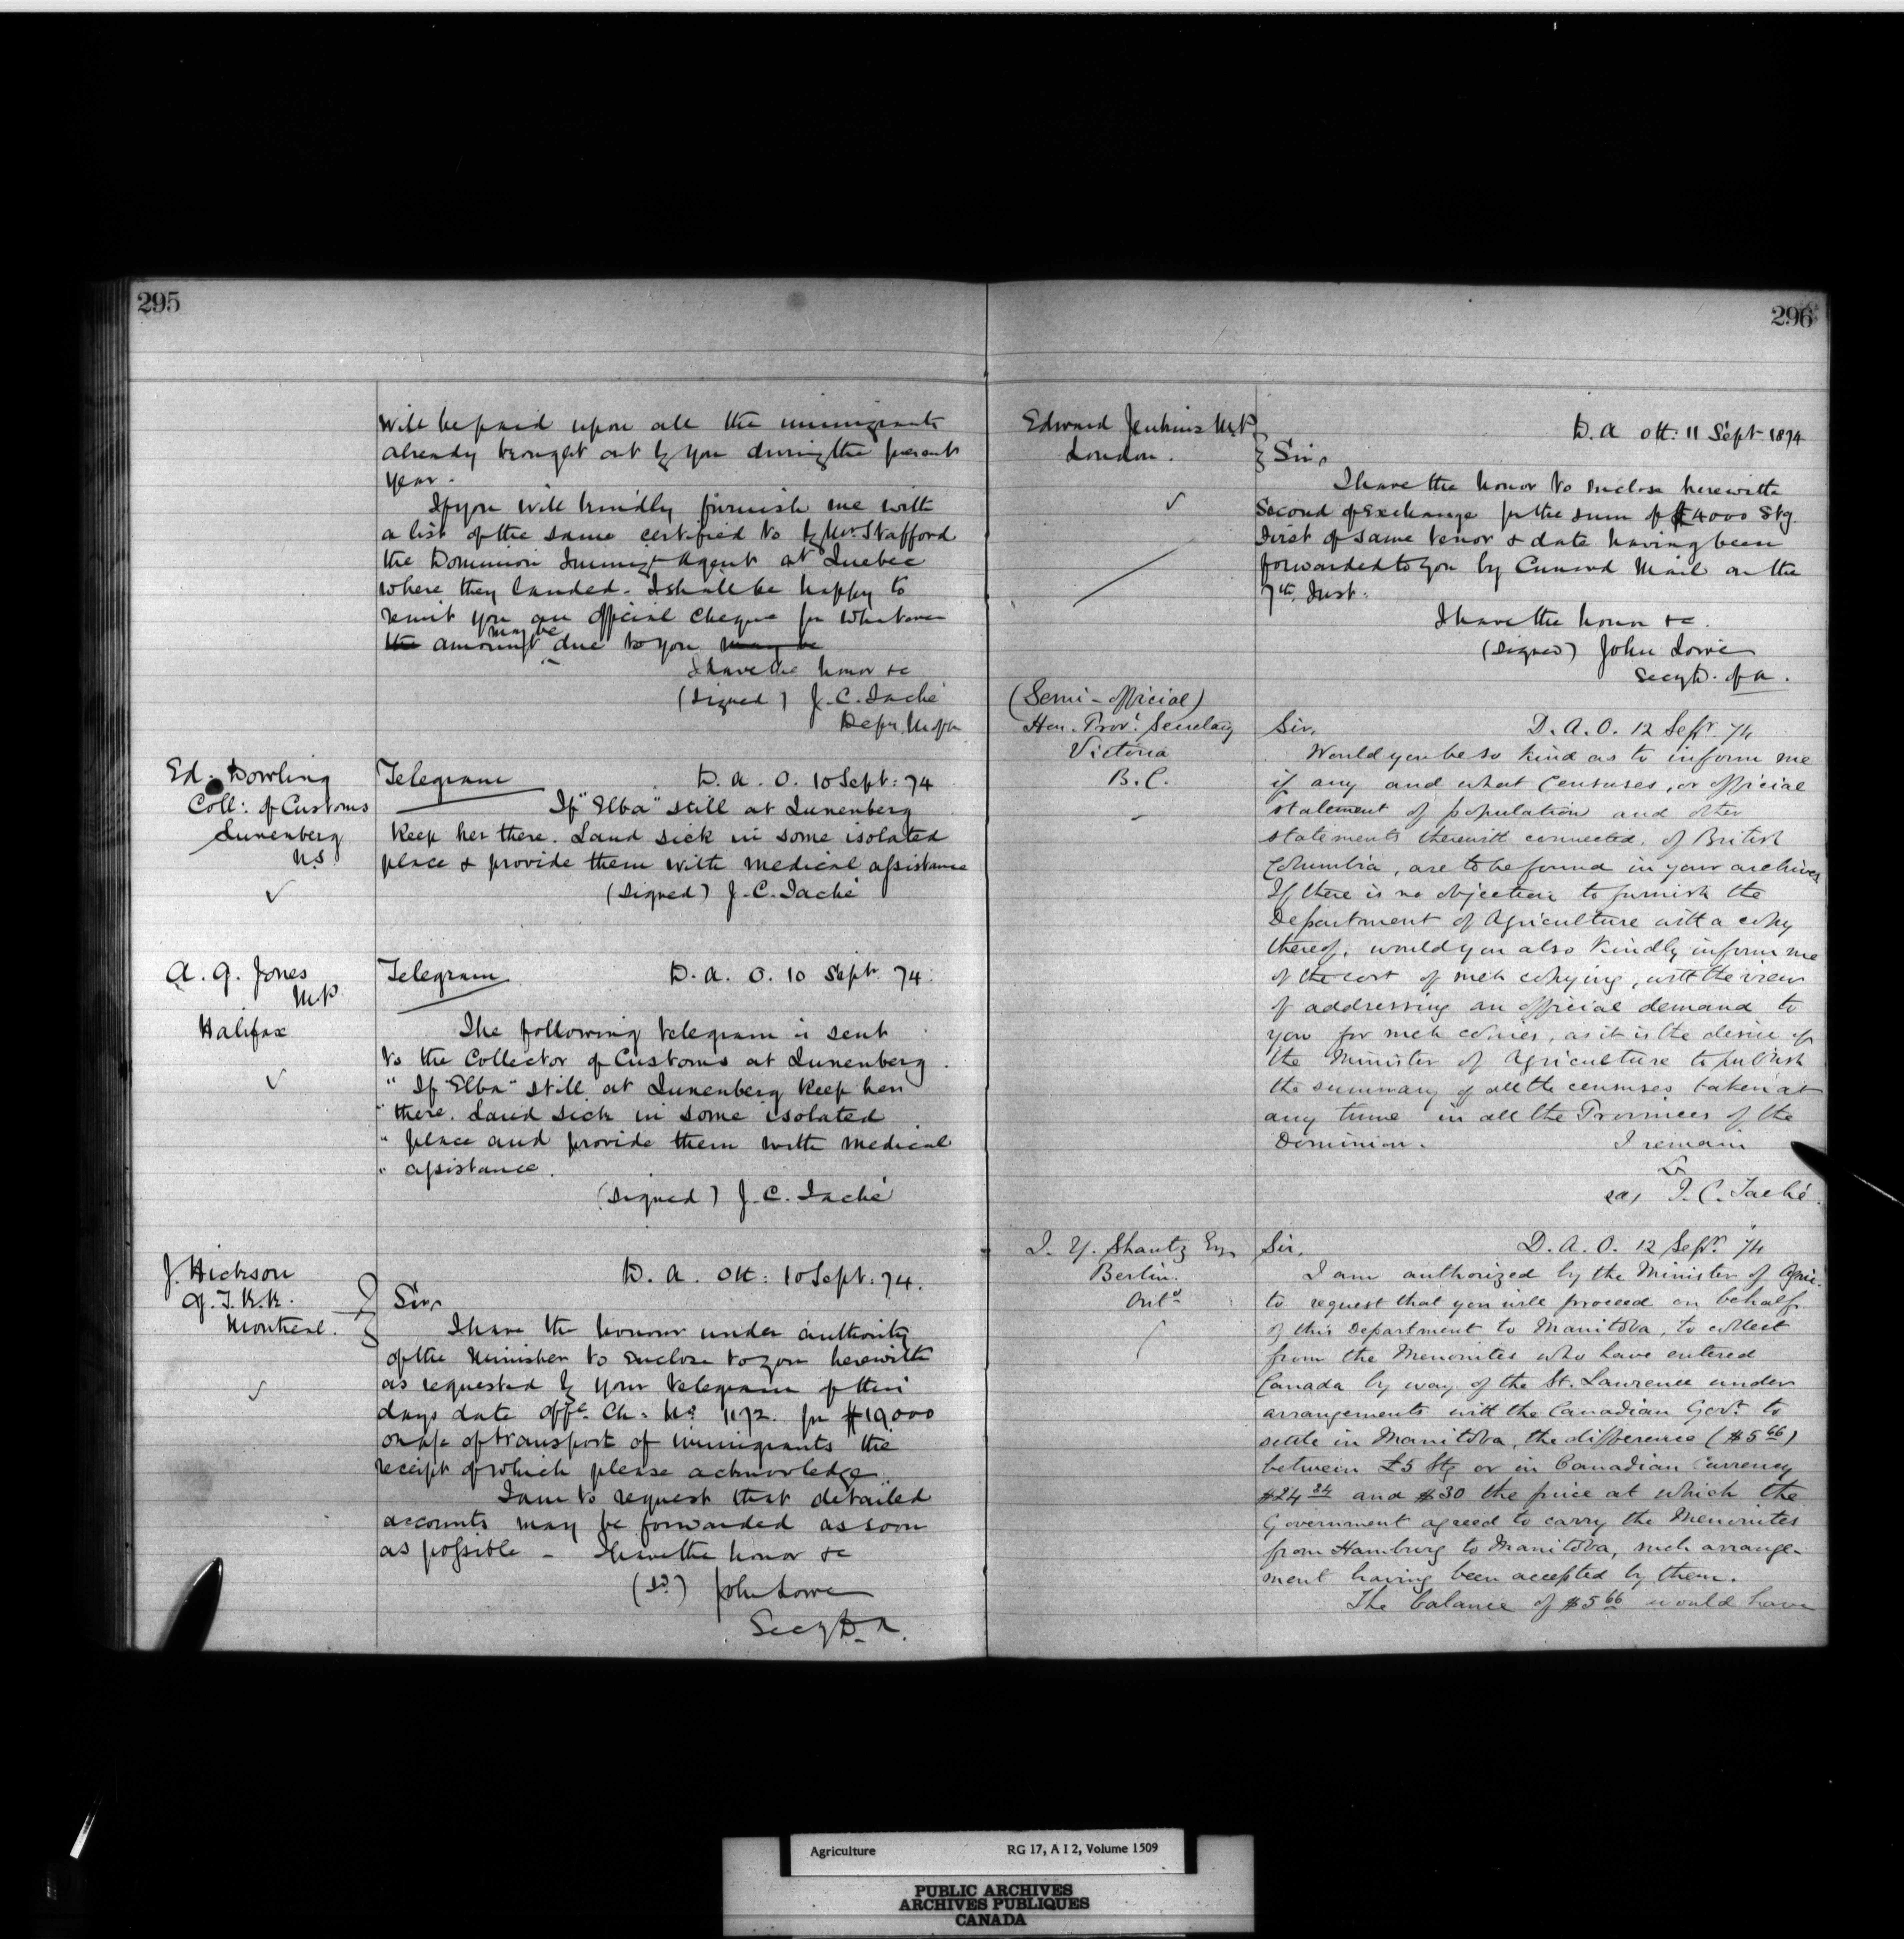 295
will be paid upon all the immigrants
already brought out by you during the present
year.
If you will kindly furnish me with
a list of the same certified to by Mr. Stafford
the Dominion Immigt Agent at Quebec
where they landed. I shall be happy to
remit you an official cheque for whatever
the amount may be due to you may be
I have the honor &c
(Signed) J. C. Taché
Depy. M of A
Ed. Dowling
Coll: of Customs
Lunenberg
N.S.
Telegram D. A. O. 10 Sept: 74
If "Elba" still at Lunenberg
keep her there. Land sick in some isolated
place & provide them with medical assistance
(Signed) J. C. Taché
A. G. Jones
M.P.
Halifax
Telegram D. A. O. 10 Sept. 74.
The following telegram is sent
to the Collector of Customs at Lunenberg.
" If "Elba" still at Lunenberg keep her
" there. Land sick in some isolated
" place and provide them with medical
" assistance.
(Signed) J. C. Taché
J. Hickson
G. T. R. R.
Montreal.
D. A. Ott: 10 Sept: 74.
Sir,
I have the honour under authority
of the Minister to enclose to you herewith
as requested by your telegram of this
days date Offl. Ch. No. 1172. for $19,000
on a/c of transport of immigrants the
receipt of which please acknowledge.
I am to request that detailed
accounts may be forwarded as soon
as possible - I have the honor &c
(Sd.) John Lowe
Secy D. A.
296
Edward Jenkins M.P.
London.
D. A Ott: 11 Sept 1874
Sir,
I have the honor to enclose herewith
Second of Exchange for the sum of £4000 Stg.
First of same tenor & date having been
forwarded to you by Cunard Mail on the
7th. Inst.
I have the honor &c.
(Signed) John Lowe
Secy D. of A.
(Semi-official)
Hon. Provl. Secretary
Victoria
B.C.
Sir, D. A. O. 12 Sept. 74
Would you be so kind as to inform me
if any and what Censuses, or official
statement of population and other
statements therewith connected, of British
Columbia, are to be found in your archives
If there is no objection to furnish the
Department of Agriculture with a copy
thereof, would you also kindly inform me
of the cost of such copying, with the view
of addressing an official demand to
you for such copies, as it is the desire of
the Minister of Agriculture to publish
the summary of all the censuses taken at
any time in all the Provinces of the
Dominion. I remain
&
sd, J. C. Taché.
J. Y. Shantz Esq
Berlin.
Onto
Sir, D. A. O. 12 Sept. 74
I am authorized by the Minister of Agric.
to request that you will proceed on behalf
of this Department to Manitoba, to collect
from the Menonites who have entered
Canada by way of the St. Lawrence under
arrangements with the Canadian Govt. to
settle in Manitoba, the difference ($5 66)
between £5 Stg or in Canadian Currency
$24 34 and $30 the price at which the
Government agreed to carry the Menonites
from Hamburg to Manitoba, such arrange-
ment having been accepted by them.
The balance of $5 66 would have
Agriculture RG 17, A I 2, Volume 1509
PUBLIC ARCHIVES
ARCHIVES PUBLIQUES
CANADA